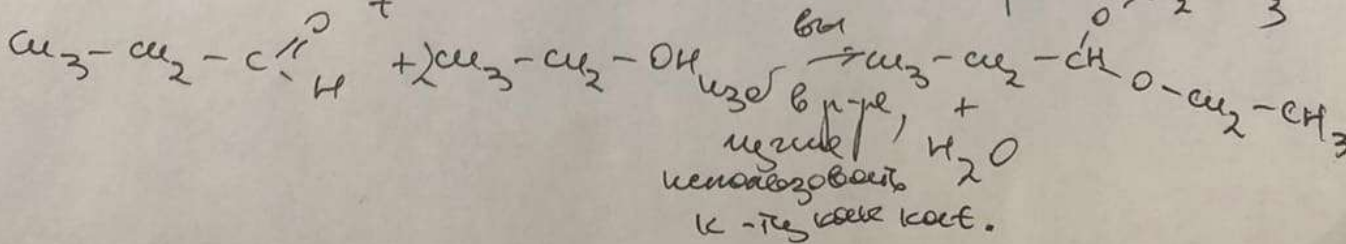 2 3
O
CH3 – CH2 – C – H + 2CH3 – CH2 – OH изб → CH3 – CH2 – CH – O – CH2 – CH3
в р-ре, + H2O
использовать
к-ту как кат.